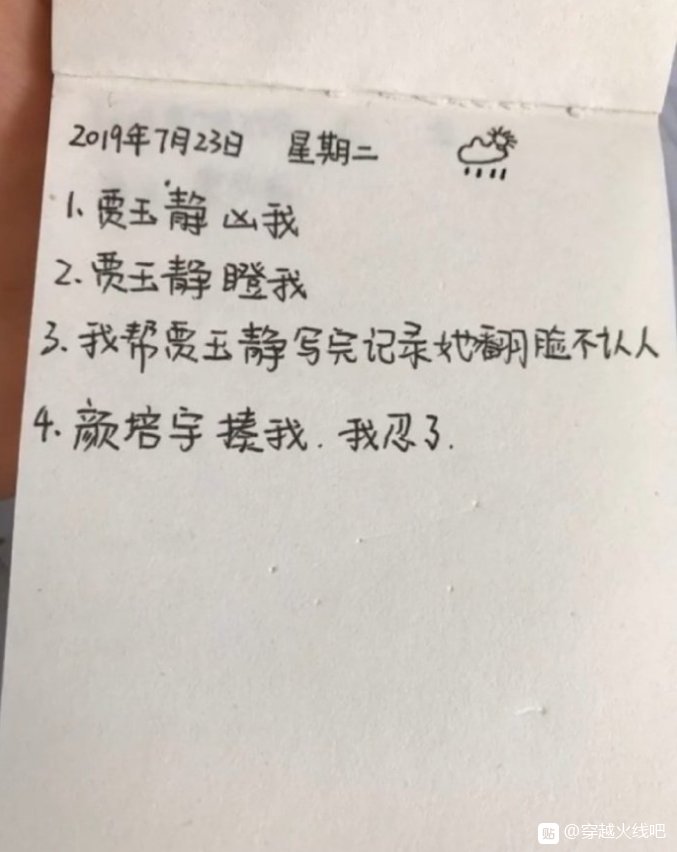 2019年7月23日 星期二
1.贾玉静凶我
2.贾玉静瞪我
3.我帮贾玉静写完记录她翻脸不认人
4.颜培宇揍我.我忍了.
贴 @穿越火线吧